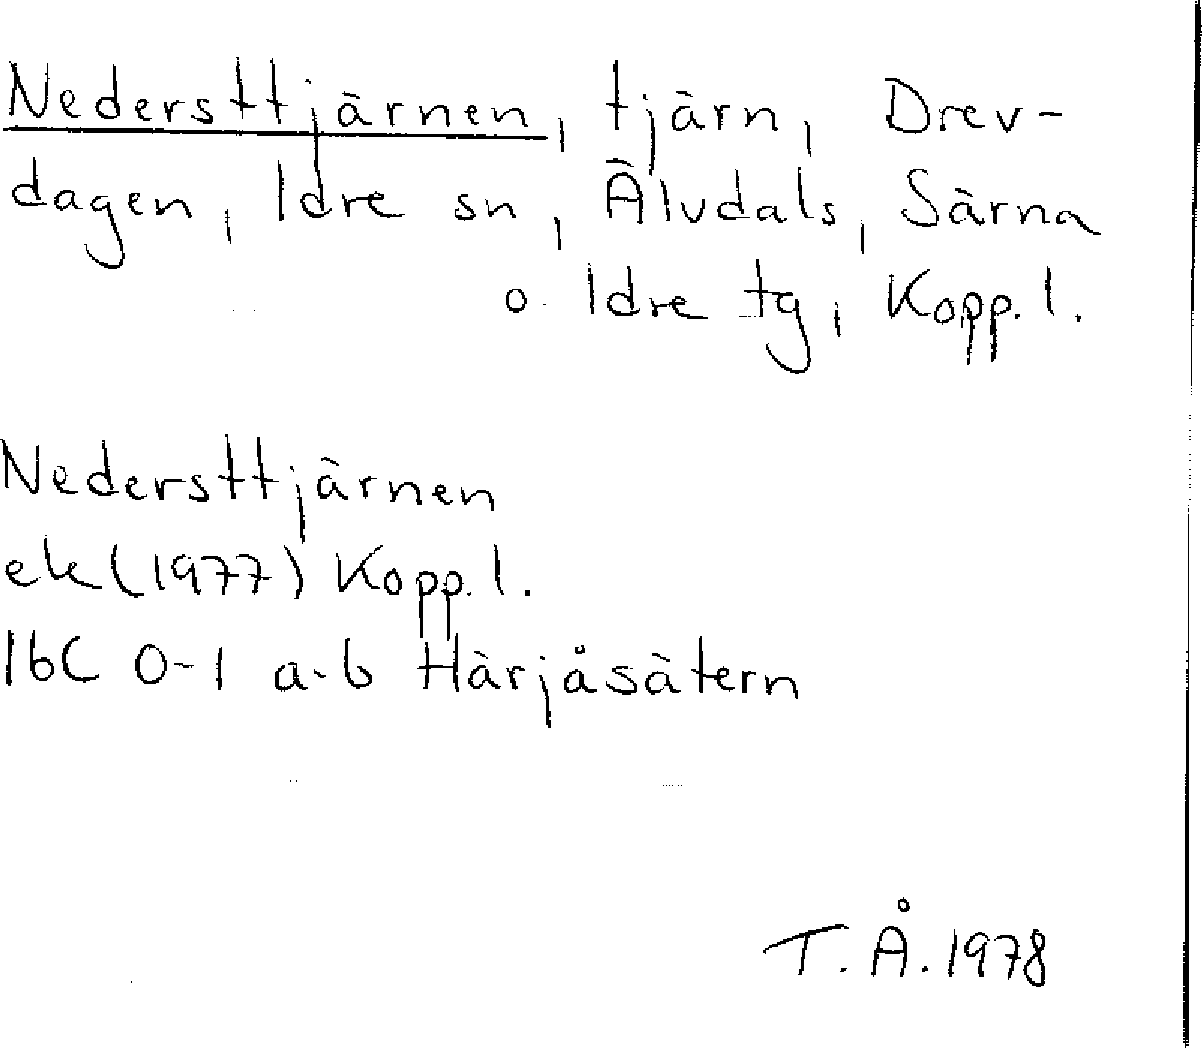 Nedersttjärnen, tjärn, Drev-
dagen, Idre sn, Älvdals, Särna
o. Idre tg, Kopp. l.
Nedersttjärnen
ek (1977) Kopp. l.
16C 0-1 a-b Härjåsätern
T. Å. 1978